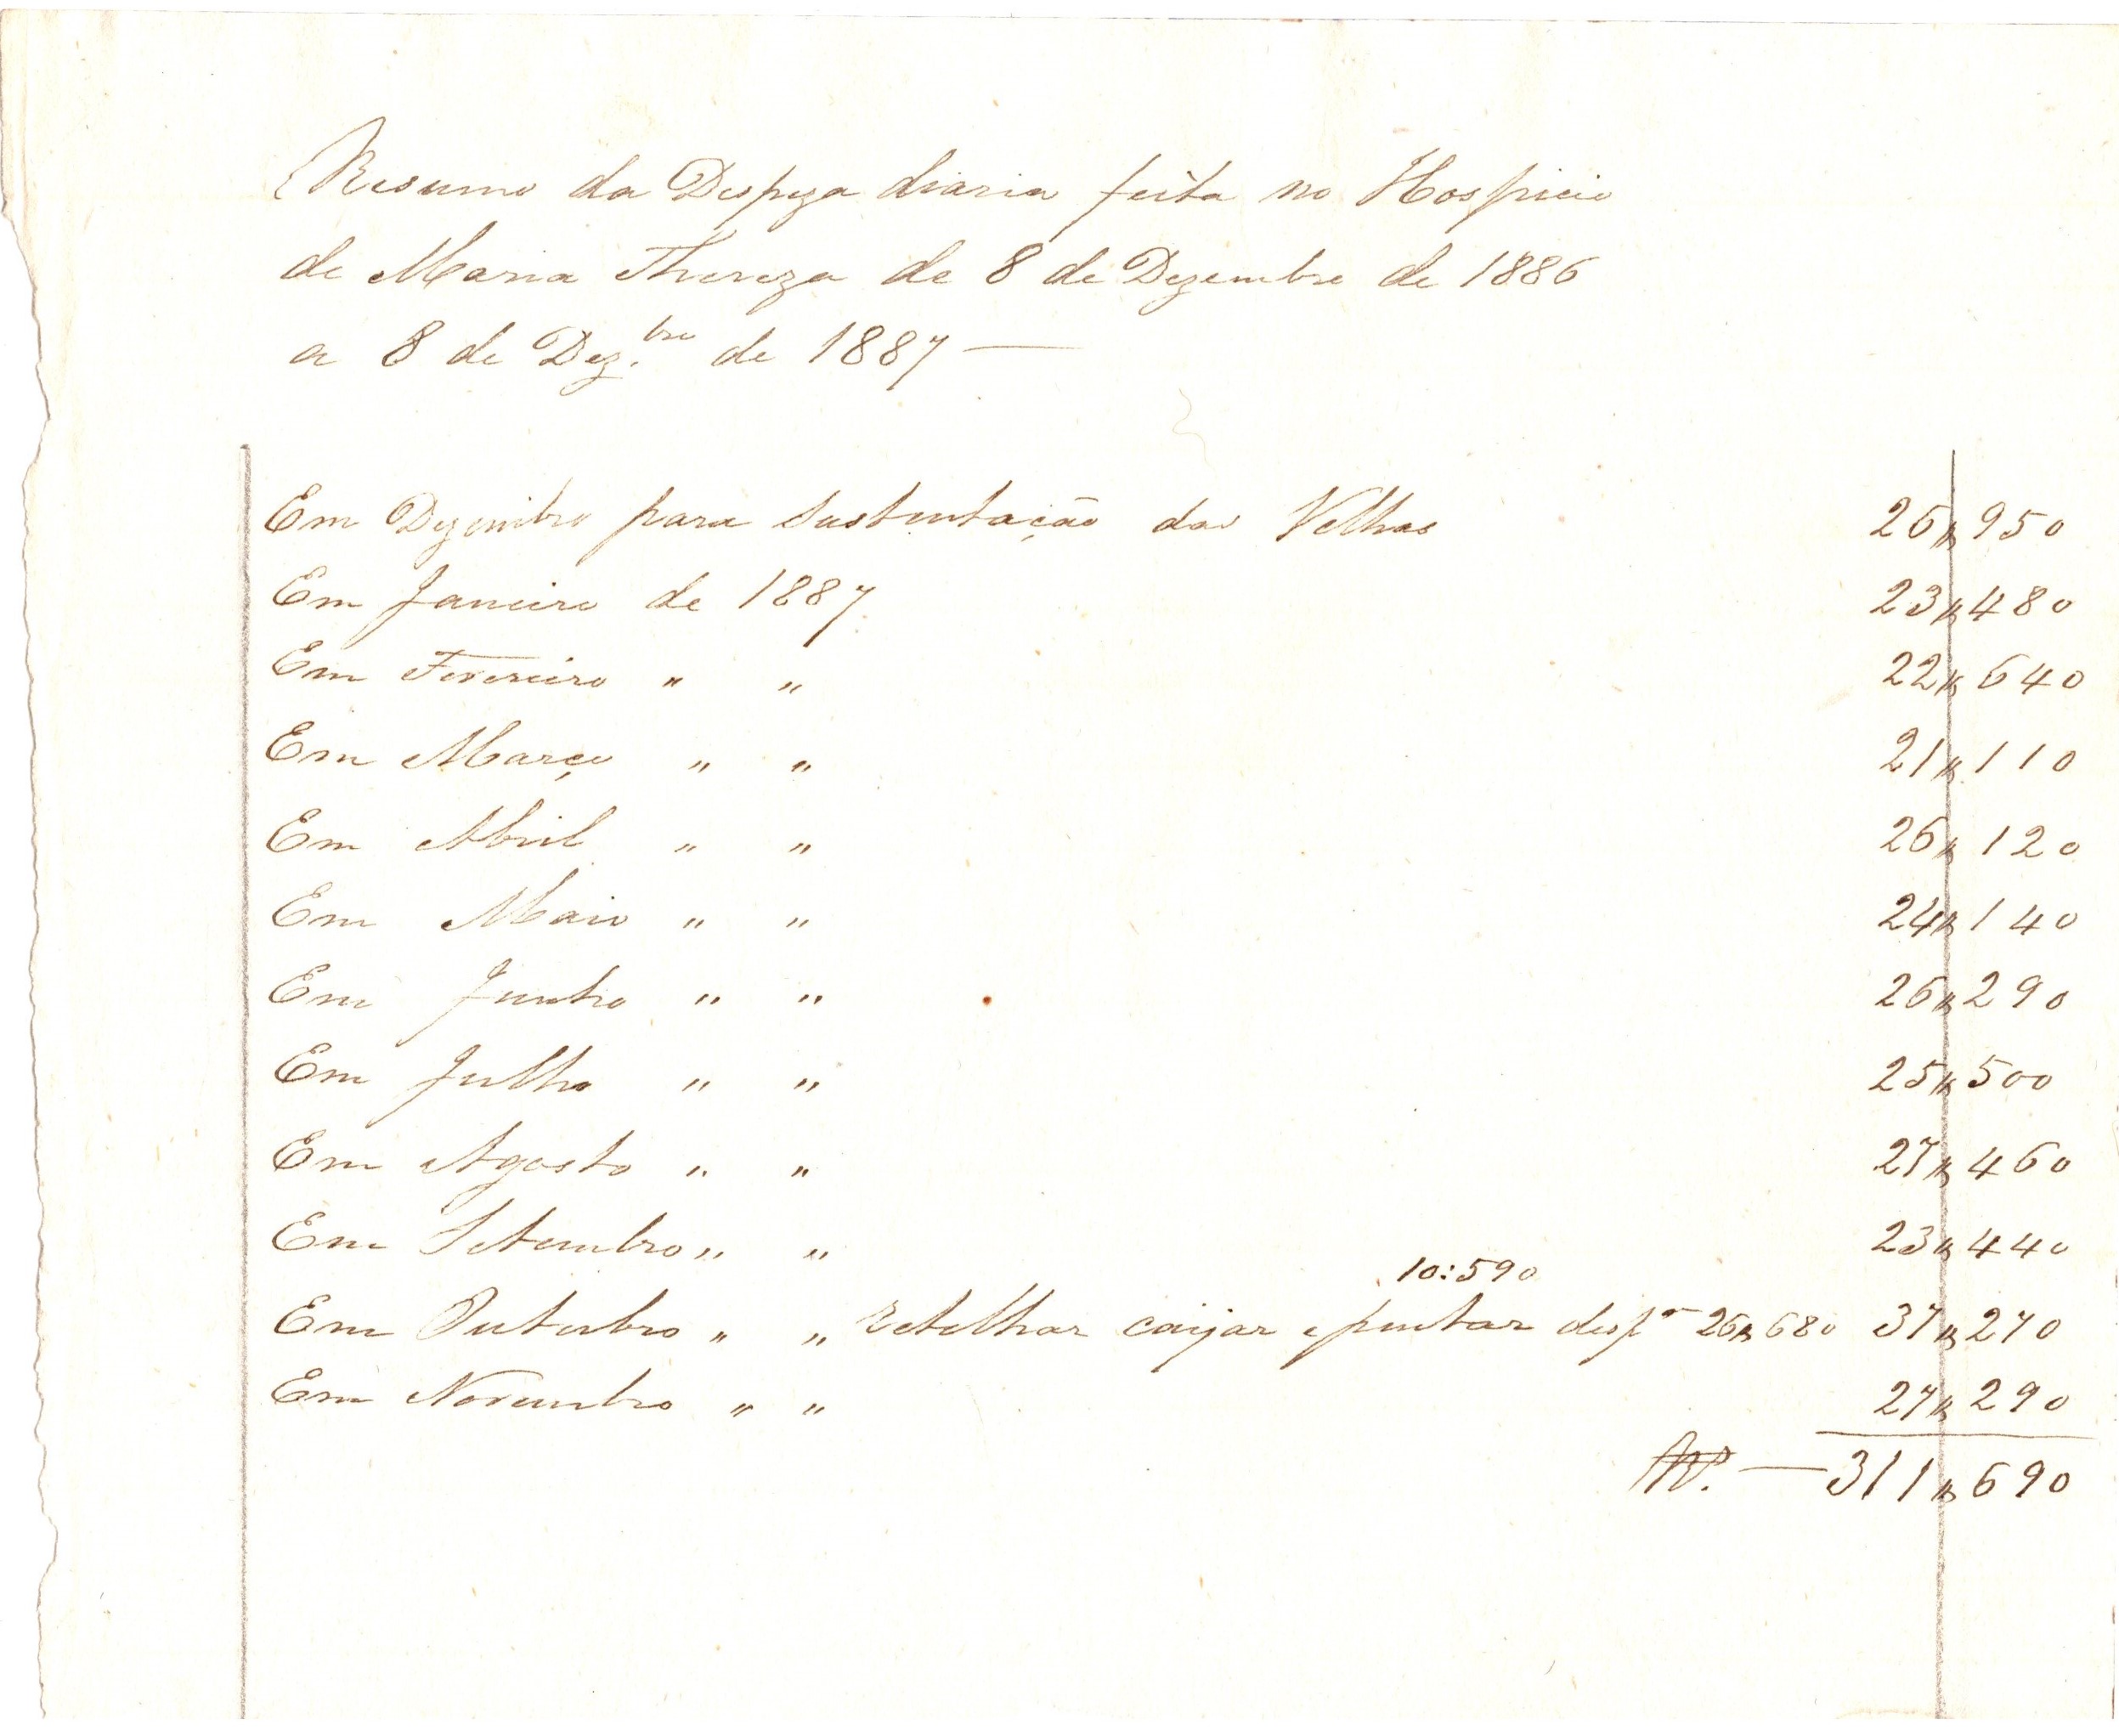 Resumo da Despeza diaria feita no Hospicio
de Maria Thereza de 8 de Dezembro de 1886
a 8 de Dez.bro de 1887 —
Em Dezembro para Sustentação das Velhas 26$950
Em Janeiro de 1887 23$480
Em Fevereiro " " 22$640
Em Março " " 21$110
Em Abril " " 26$120
Em Maio " " 24$140
Em Junho " " 26$290
Em Julho " " 25$500
Em Agosto " " 27$460
Em Setembro " " 23$440
10:590
Em Outubro " " retelhar caijar e pintar desp.a 26$680 37$270
Em Novembro " " 27$290
— 311$690